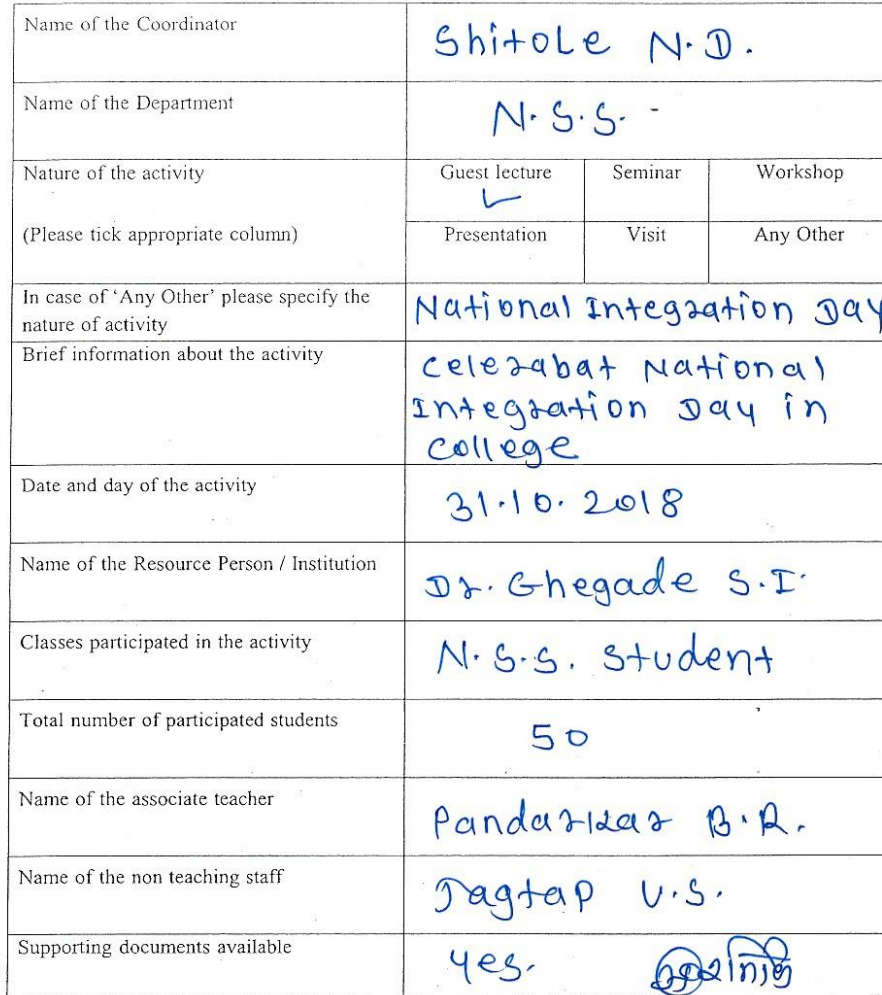 Name of the Coordinator
Shitole N.D.
Name of the Department
N.S.S. -
Nature of the activity
Guest lecture
Seminar
Workshop
(Please tick appropriate column)
Presentation
Visit
Any Other
In case of 'Any Other' please specify the
nature of activity
National Integration Day
Brief information about the activity
Celerabat National
Integration Day in
College
Date and day of the activity
31.10.2018
Name of the Resource Person / Institution
Dr. Ghegade S.I.
Classes participated in the activity
N.S.S. Student
Total number of participated students
50
Name of the associate teacher
Pandarkar B.R.
Name of the non teaching staff
Jagtap V.S.
Supporting documents available
Yes.